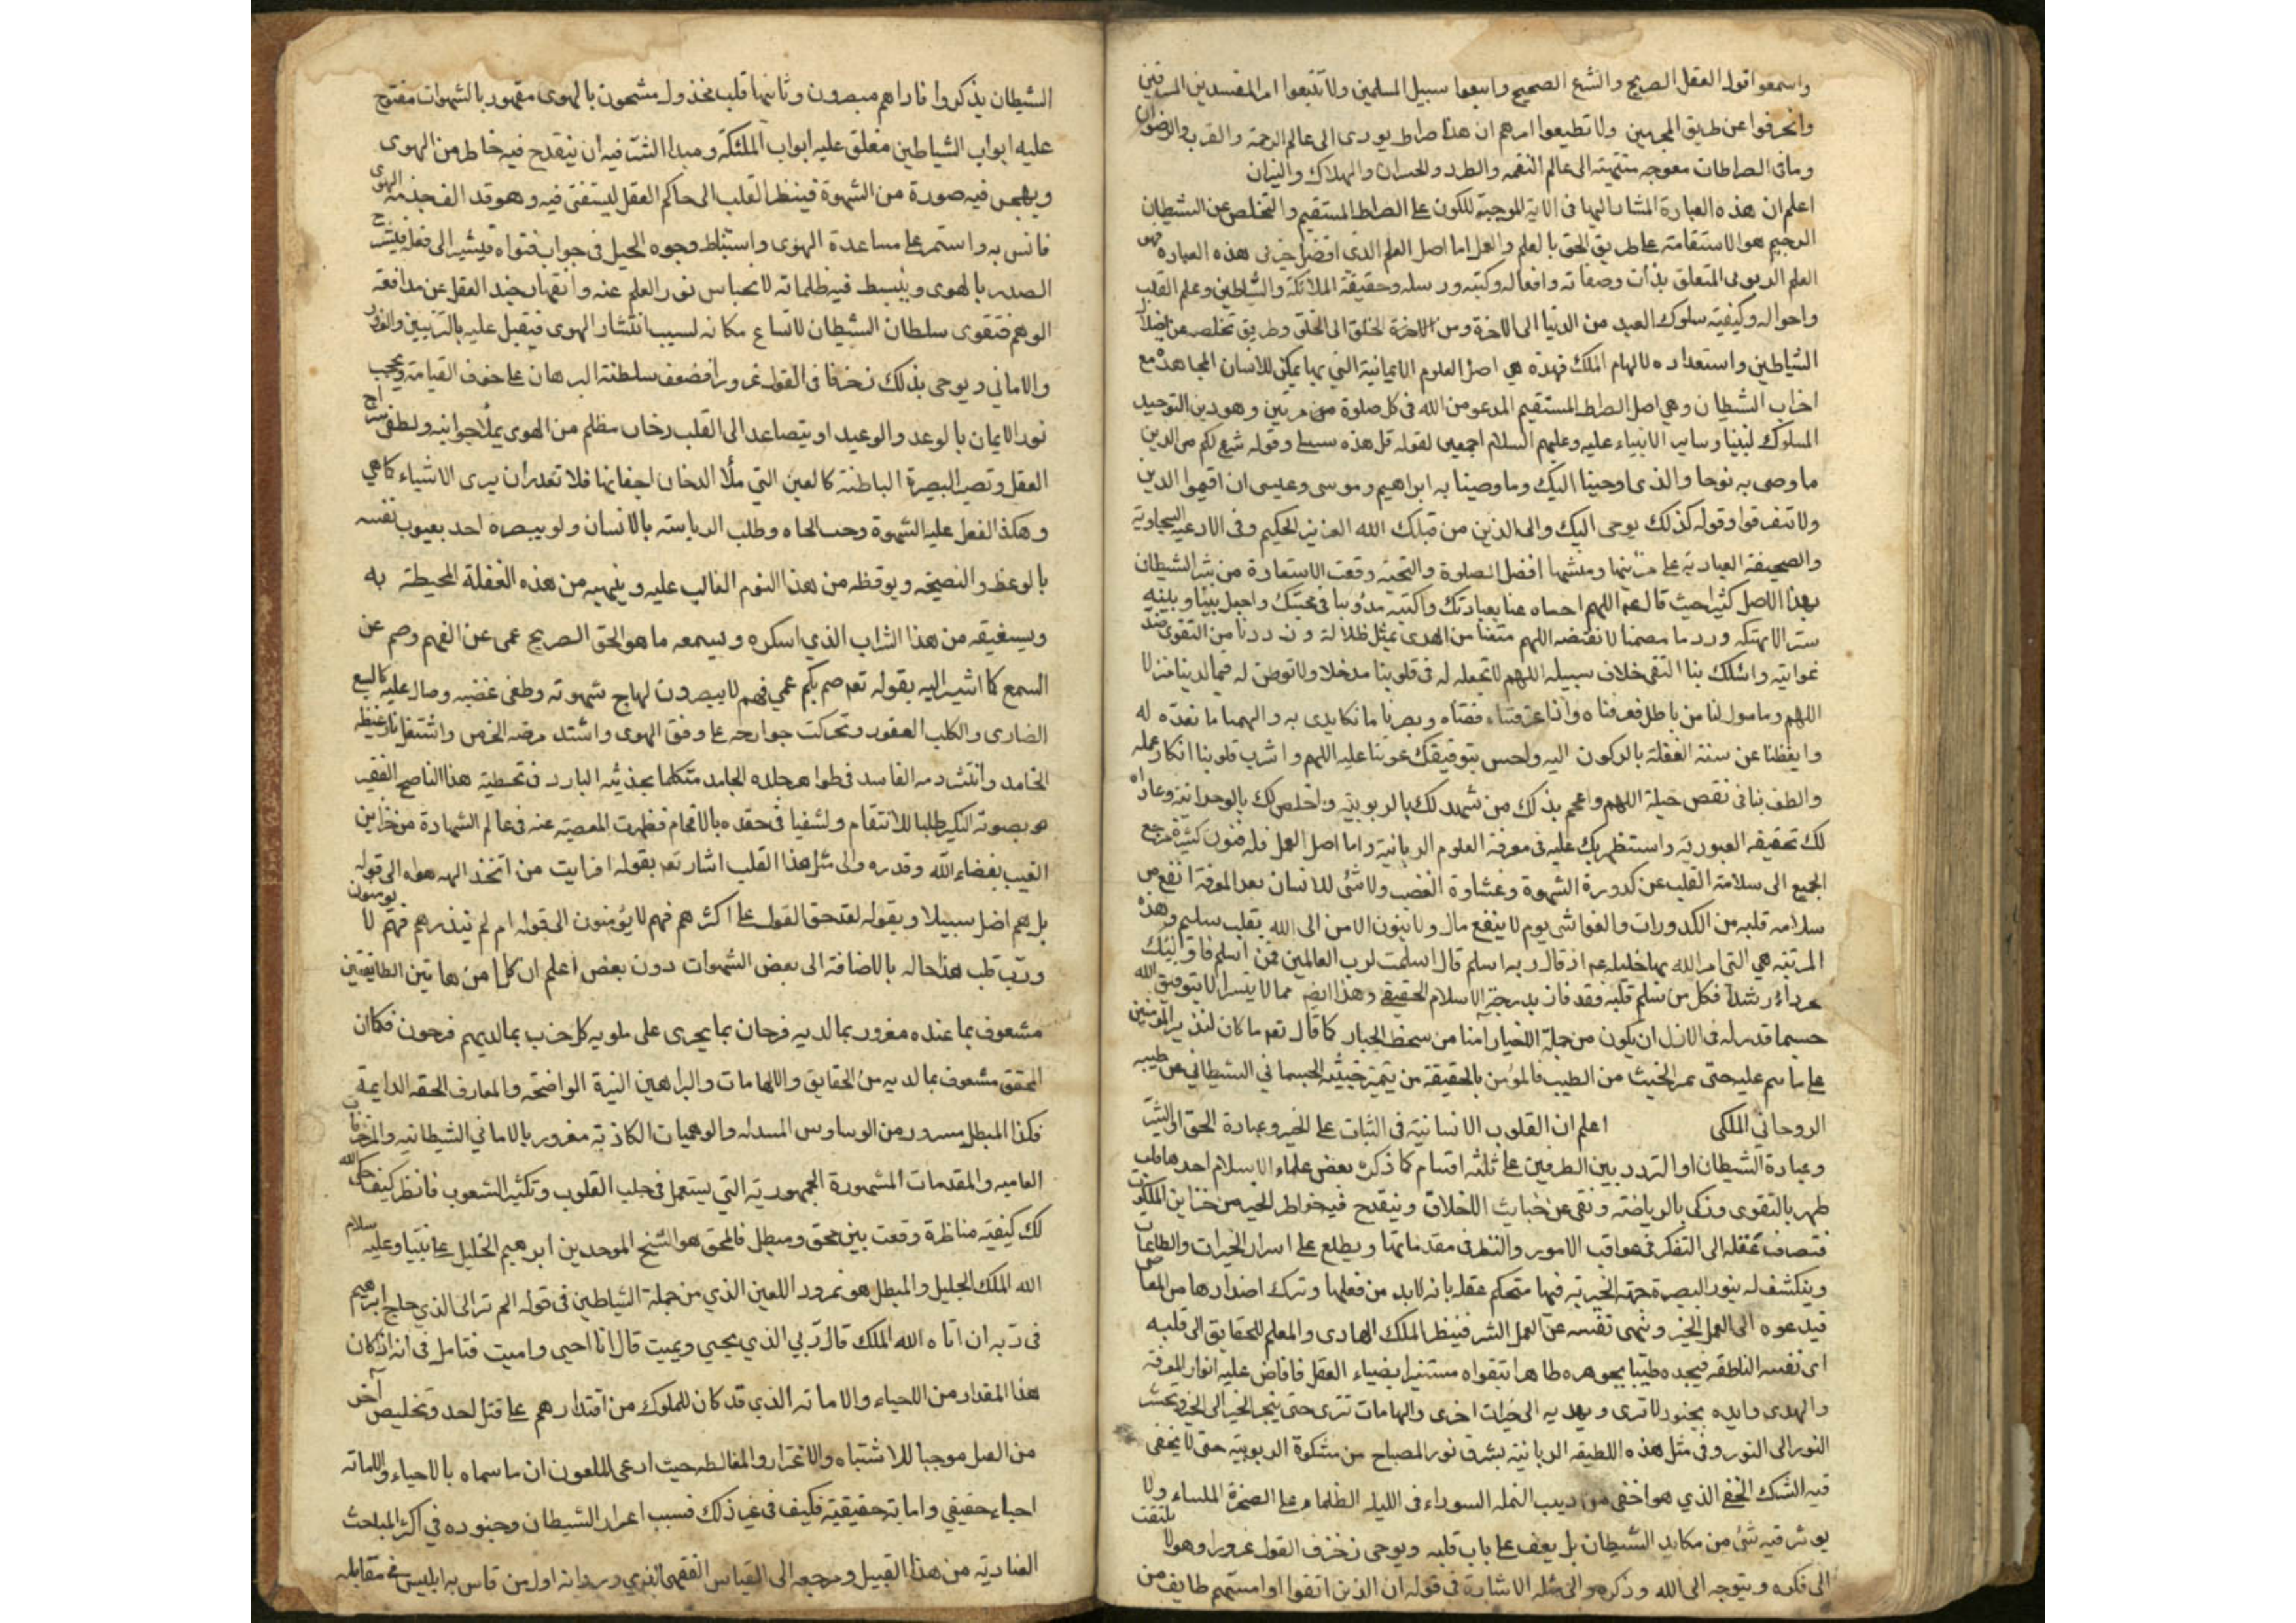 واسمعوا قول العقل الصريح والشرع الصحيح واتبعوا سبيل المسلمين ولا تتبعوا امر المفسدين المسرفين
وانحرفوا عن طريق المجرمين ولا تطيعوا امرهم ان هذا صراط يودى الى عالم الرحمة والقرب والرضوان
وباقى الصراطات معوجه منتهيته الى عالم النقمه والطرد والخسران والهلاك والنيران
اعلم ان هذه العبارة المشار اليها فى الاية الموجبة للكون على الصراط المستقيم والتخلص عن الشيطان
الرجيم هو الاستقامته على طريق الحق بالعلم والعمل اما اصل العلم الذى افضل جزئى هذه العباره فهو
العلم الربوبى المتعلق بذات وصفاته وافعاله وكتبه ورسله وحقيقة الملائكة والشياطين وعلم القلب
واحواله وكيفيته سلوك العبد من الدنيا الى الاخرة ومن الاخرة الخلق الى الخلق وطريق تخلصه عن اضلال
الشياطين واستعداده لالهام الملك فهذه هي اصل العلوم الايمانية التي بها يمكن للانسان المجاهدة مع
احزاب الشيطان وهي اصل الصراط المستقيم المدعو من الله فى كل صلوة من مرتين وهو دين التوحيد
المسلوك لنبينا وساير الانبياء عليه وعليهم السلام اجمعين لقوله قل هذه سبيلى وقوله شرع لكم من الدين
ما وصى به نوحا والذى اوحينا اليك وما وصينا به ابراهيم وموسى وعيسى ان اقيموا الدين
ولا تتفرقوا وقوله كذلك يوحى اليك والى الذين من قبلك الله العزيز الحكيم وفى الادعيه السجاديه
والصحيفة العباديه على منشيها افضل الصلوة والتحية وقعت الاستعاذة من شر الشيطان
بهذا الاصل كثيرا حيث قال عم اللهم اخساه عنا بعبادتك واكبته بدؤوبنا فى محبتك واجعل بيننا وبينه
سترا لا يهتكه وردما مصمتا لا يفتقه اللهم متعنا من الهدى بمثل ضلالته وزودنا من التقوى ضد
غوايته واسلك بنا التقى خلاف سبيله اللهم لا تجعل له فى قلوبنا مدخلا ولا توطن له فيما لدينا منزلا
اللهم وما سول لنا من باطل فعرفناه واذا عرفتناه فقناه وبصرنا ما نكايدى به والهمنا ما نعده له
وايقظنا عن سنة الغفلة بالركون اليه واحسن بتوفيقك عوننا عليه اللهم واشرب قلوبنا انكار عمله
والطف بنا فى نقض حيلة اللهم واعم بذلك من شهد لك بالربوبيته واخلص لك بالوحدانية وعاداه
لك تحقيقه العبوديه واستظهر بك عليه فى معرفة العلوم الربانية واما اصل العمل فله فنون كثيرة مرجع
الجميع الى سلامة القلب عن كدورة الشهوة وغشاوة الغضب ولا شئ للانسان بعد المعرفة انفع من
سلامه قلبه من الكدورات والغواشى يوم لا ينفع مال ولا بنون الا من اتى الله بقلب سليم وهذه
المرتبه هي التى امر الله بها خليله عم اذ قال ربه اسلم قال اسلمت لرب العالمين فمن اسلم فاولئك
تحروا رشدا فكل من سلم قلبه فقد فاز بدرجة الاسلام الحقيقي وهذا ايضا مما لا يتسر الا بتوفيق الله
حسبما قدر له فى الازل ان يكون من جملة الاخيار آمنا من سخط الجبار كما قال تعه ما كان لنذر المؤمنين
على ما نتم عليه حتى يمز الخبيث من الطيب فالمؤمن بالحقيقة من يتميز خبيثه الجسماني الشيطاني عن طيبه
الروحاني الملكى اعلم ان القلوب الانسانية فى الثبات على الخير وعبادة الحق او الشر
وعبادة الشيطان او التردد بين الطرفين على ثلثه اقسام كما ذكره بعض علماء الاسلام احدها قلب
طهر بالتقوى وزكى بالرياضته ونقى عن خبايث الاخلاق وينقدح فيه خواطر الخير من خزاين الملكوت
فتصاف عقله الى التفكر فى عواقب الامور والنظر فى مقدماتها ويطلع على اسرار الخيرات والطاعات
وينكشف له بنور البصيرة جهته الخيريه فيها فتحكم عقله بانه لابد من فعلها وترك اضدادها من المعاصى
فيدعوه الى العمل الخير وينهى نفسه عن العمل الشر فينظر الملك الهادى والمعلم للحقايق الى قلبه
اى نفسه الناطقه فيجده طيبا بجوهره طاهرا بتقواه مستنيرا بضياء العقل فافاض عليه انوار المعرفة
والهدى وايده بجنود لا ترى ويهديه الى خيرات اخرى والهامات تترى حتى ينجر الخير الى الخير ويحشر
النور الى النور وفى مثل هذه اللطيفه الربانية يشرق نور المصباح من مشكوة الربوبيته حتى لا يخفى
فيه الشك الخفي الذي هو اخفى من دبيب النمله السوداء فى الليله الظلماء على الصخرة الملساء ولا
يوثر فيه شئ من مكايد الشيطان بل يقف على باب قلبه ويوحى زخرف القول غرورا وهو لا يلتفت
الى فكره ويتوجه الى الله وذكره والى مثله الاشارة فى قوله ان الذين اتقوا اذا مستهم طايف من
الشيطان يذكروا فاذا هم مبصرون وثانيها قلب مخذول مشحون بالهوى مقهور بالشهوات مفتوح
عليه ابواب الشياطين مغلق عليه ابواب الملئكة ومبدا الشر فيه ان ينقدح فيه خاطر من الهوى
ويهجس فيه صورة من الشهوة فينظر القلب الى حاكم العقل ليستفتى فيه وهو قد الف خدمة الهوى
فانس به واستمر على مساعدة الهوى واستنباط وجوه الحيل فى جواب فتواه فيشير الى فعله فينشرح
الصدر بالهوى وينبسط فيه ظلماته لانحباس نور العلم عنه وانقهار جند العقل عن مدافعة
الوهم فتقوى سلطان الشيطان لاتساع مكانه لسبب انتشار الهوى فيقبل عليه بالتزيين والغرور
والاماني ويوحى بذلك زخرفا فى القول غرورا فضعف سلطنة البرهان على خوف القيامة ويحجب
نور الايمان بالوعد والوعيد او يتصاعد الى القلب دخان مظلم من الهوى يملأ جوانبه ولطفى سراج
العقل وتصير البصيرة الباطنة كالعين التي ملأ الدخان اجفانها فلا تقدر ان يرى الاشياء كما هي
وهكذا الفعل عليه الشهوة وحب الجاه وطلب الرياسته بالانسان ولو يبصره احد بعيوب نفسه
بالوعظ والنصيحة ويوقظه من هذا النوم الغالب عليه وينبهه من هذه الغفلة المحيطة به
ويستفيقه من هذا الشراب الذي اسكره ويسمعه ما هو الحق الصريح عمى عن الفهم وصم عن
السمع كما اشير اليه بقوله تعه صم بكم عمي فهم لا يبصرون لهاج شهوته وطغى غضبه وصال عليه كالسبع
الضارى والكلب العقور وتحركت جوارحه على وفق الهوى واشتد مرضه الحرص واشتعل نار غيظه
الخامد وانتشر دمه الفاسد فى ظواهر جلده الجامد متكلما بحديثه البارد فى تخطئة هذا الناصح الفقير
هو بصوته النكير طلبا للانتقام ولشفيا فى حقده بالاقحام فظهرت المعصيته عنه فى عالم الشهادة من خزاين
الغيب بقضاء الله وقدره والى مثل هذا القلب اشار تعه بقوله افرايت من اتخذ الهه هواه الى قوله
بل هم اضل سبيلا وبقوله لقد حق القول على اكثرهم فهم لا يؤمنون الى قوله ام لم تنذرهم فهم لا يومنون
ورب قلب هذا حاله بالاضافة الى بعض الشهوات دون بعض اعلم ان كلا من هاتين الطايفتين
مشعوف بما عنده مغرور بما لديه فرحان بما يجرى على ملويه كل حزب بما لديهم فرحون فكما ان
المحقق مشعوف بما لديه من الحقايق والالهامات والبراهين النيرة الواضحه والمعارف الحقه الدايمة
فكذا المبطل مسرور من الوساوس المسدله والوهميات الكاذبة مغرور بالاماني الشيطانيه والمزخرفات
العاميه والمقدمات المشهورة الجمهورية التي يستعمل فى جلب القلوب وتكثير الشعوب فانظر كيف حكى الله
لك كيفيته مناظرة وقعت بين محق ومبطل فالمحق هو الشيخ الموحدين ابرهيم الخليل على نبينا وعليه سلام
الله الملك الجليل والمبطل هو نمرود اللعين الذي من جملة الشياطين فى قوله الم تر الى الذي حاج ابرهيم
فى ربه ان اتاه الله الملك قال ربي الذي يحيي ويميت قال انا احيى واميت فتامل فى انه اذ كان
هذا المقدار من الاحياء والاماته الذي قد كان للملوك من اقتدارهم على قتل احد وتخليص آخر
من القتل موجبا للاشتباه والاغترار والمغالطه حيث ادعى الملعون ان ما سماه بالاحياء والاماته
احياء حقيقي واماتة حقيقية فكيف فى غير ذلك فسبب اغرار الشيطان وجنوده في اكثر المباحث
العناديه من هذا القبيل ومرجعه الى القياس الفقهى الذي ورد انه اول من قاس به ابليس في مقابله